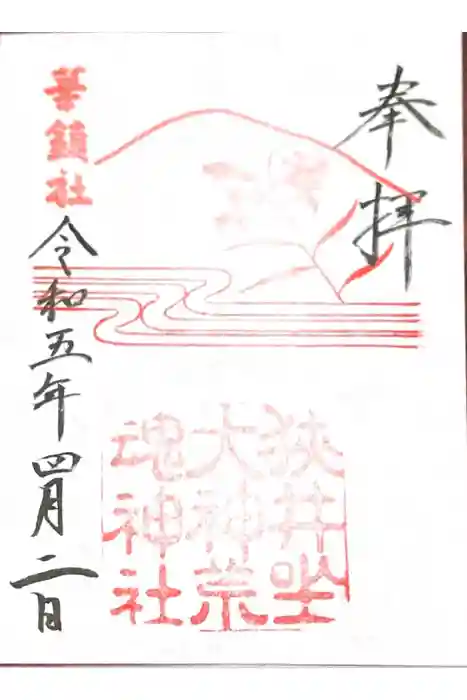 奉拝
華鎮社
令和五年四月二日
狭井坐
大神荒
魂神社